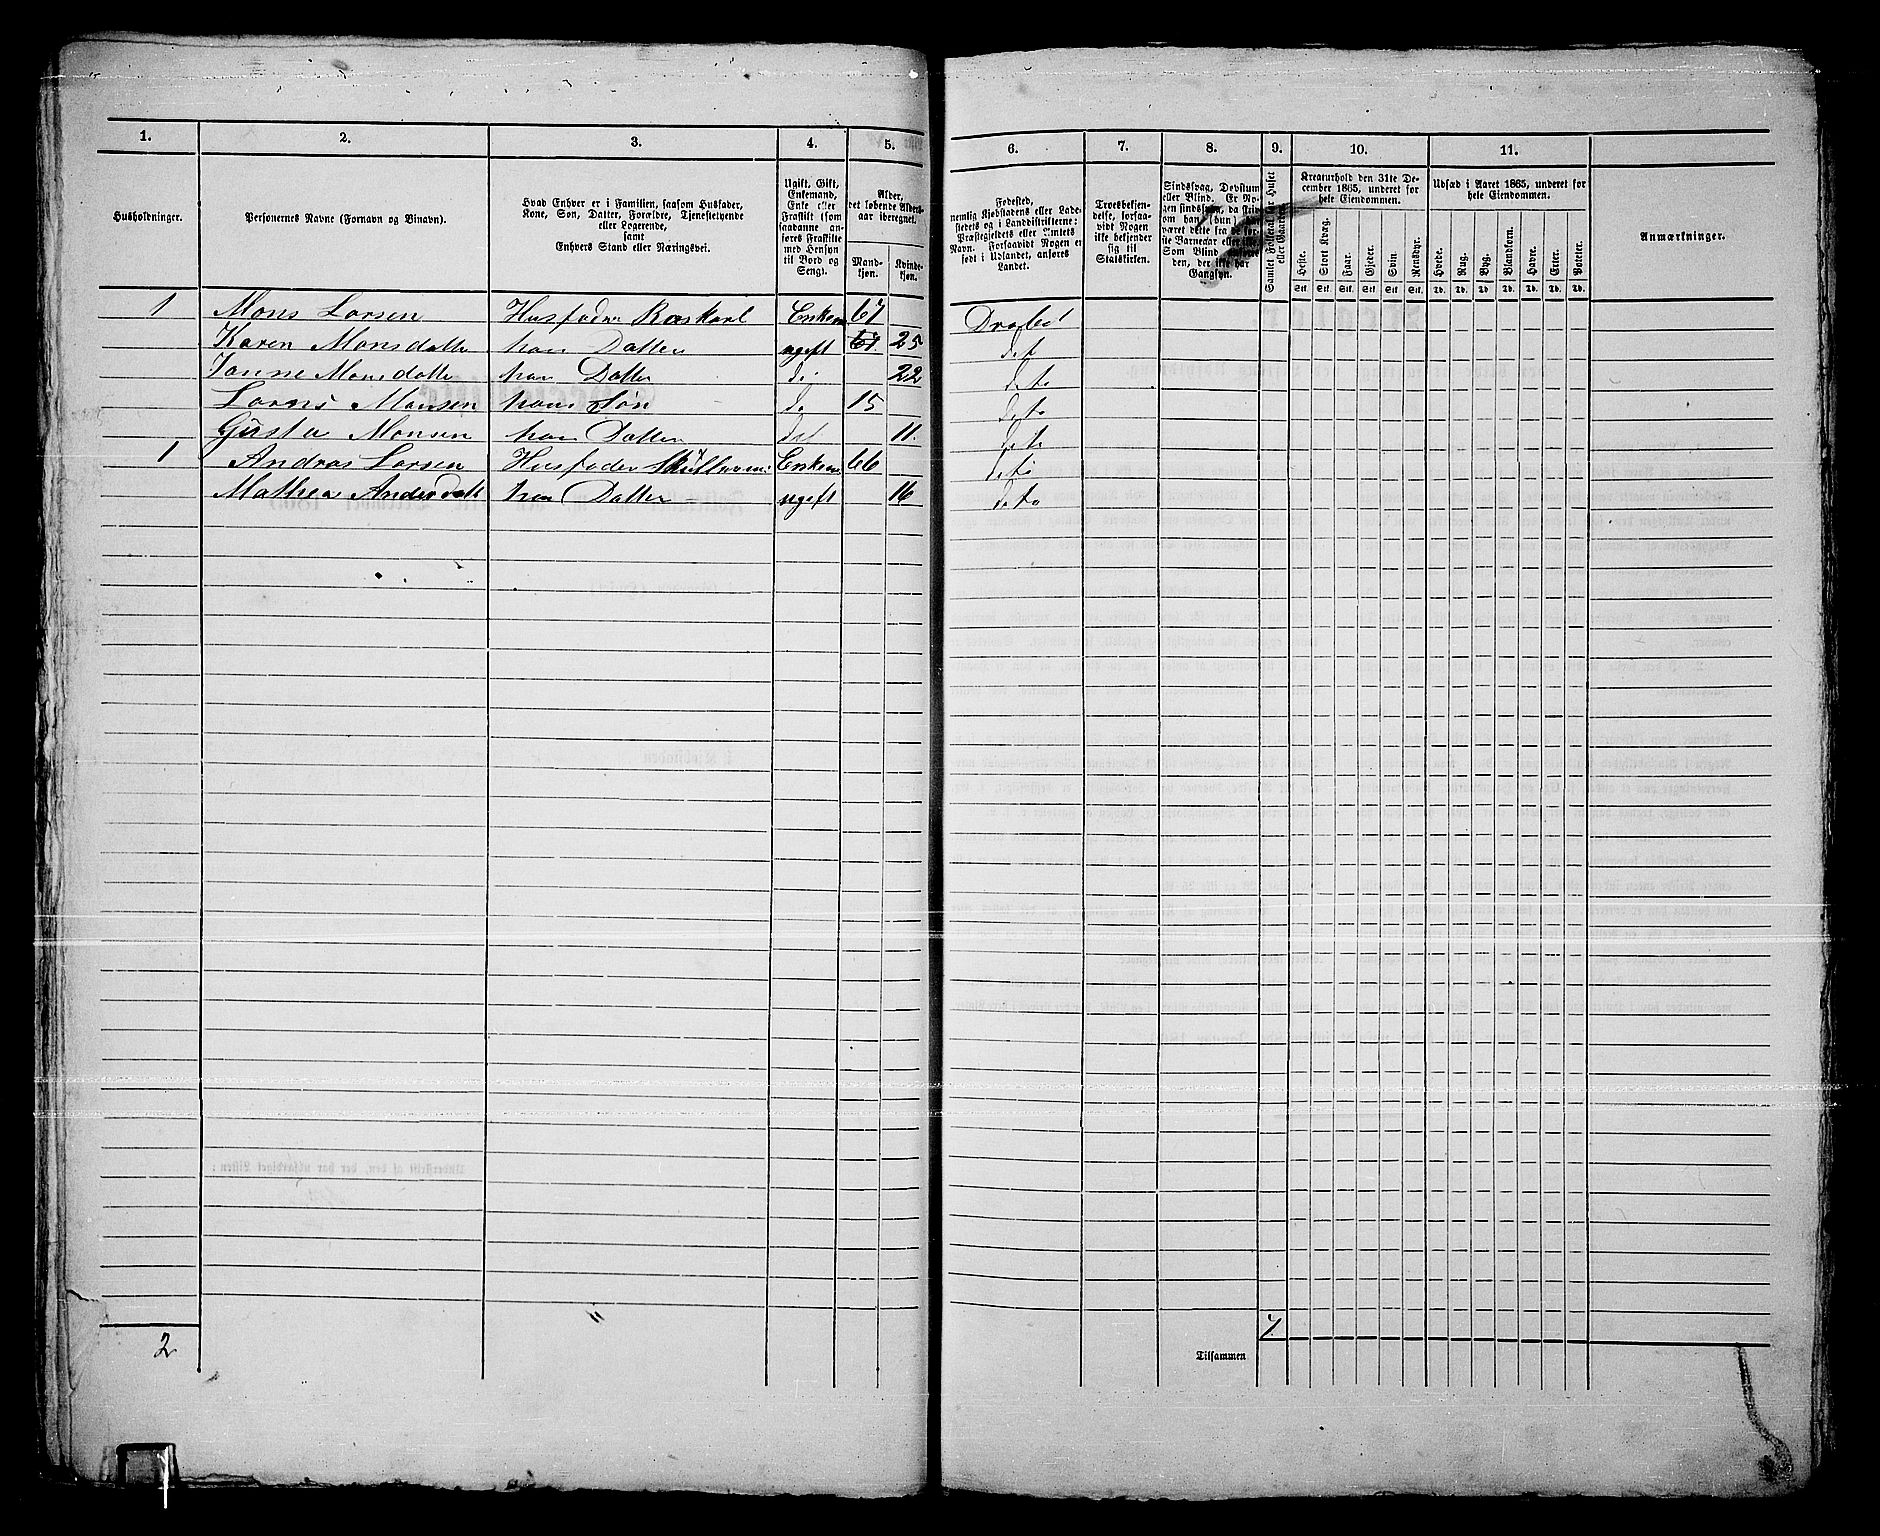 1.
2.
3.
4.
5.
6.
7.
8.
9.
10.
11.
Husholdninger.
Personernes Navne (Fornavn og Binavn).
Hvad Enhver er i Familien, saasom Husfader,
Kone, Søn, Datter, Forældre, Tjenestetyende
eller Logerende,
samt
Enhvers Stand eller Næringsvei.
Ugift, Gift,
Enkemand,
Enke eller
Fraskilt (som
saadanne an-
føres Fraskilte
med Hensyn
til Bord og
Seng).
Alder,
det løbende Alders-
aar iberegnet.
Mand-
kjøn.
Kvinde-
kjøn.
Fødested,
nemlig Kjøbstadens eller Lade-
stedets og i Landdistrikterne:
Præstegjeldets eller Amtets
Navn. Forsaavidt Nogen er
født i Udlandet, anføres
Landet.
Troesbekjen-
delse, forsaa-
vidt Nogen
ikke bekjender
sig til
Statskirken.
Sindssvag, Døvstum
eller Blind. Er No-
gen sindssvag, da skil
om han (hun) har
været dette fra de før-
ste Barneaar eller ikke.
Som Blind anføres
den, der ikke har
Gangsyn.
Samlet Folketal for Huset
eller Gaarden.
Kreaturhold den 31te De-
cember 1865, underet for
hele Eiendommen.
Heste.
Stort Kvæg.
Faar.
Gjeder.
Svin.
Rensdyr.
Stk. Stk. Stk. Stk. Stk. Stk.
Udsæd i Aaret 1865, underet for
hele Eiendommen.
Hvede.
Rug.
Byg.
Blandkorn.
Havre.
Erter.
Poteter.
Td. Td. Td. Td. Td. Td. Td.
Anmærkninger.
1 Mons Larsen Husfader Enkem 67 Drøbak
Karen Monsdatter hans Datter ugift 25 det
Janne Monsdatter hans Datter do 22 deto
Lorns Monsen hans Søn do 15 deto
Gusta Monsen hans Datter det 11. deto
1 Andras Larsen Husfader Enkem 66 deto
Mathea Andersdatt hans Datter ugift 16 deto
2
7.
Tilsammen